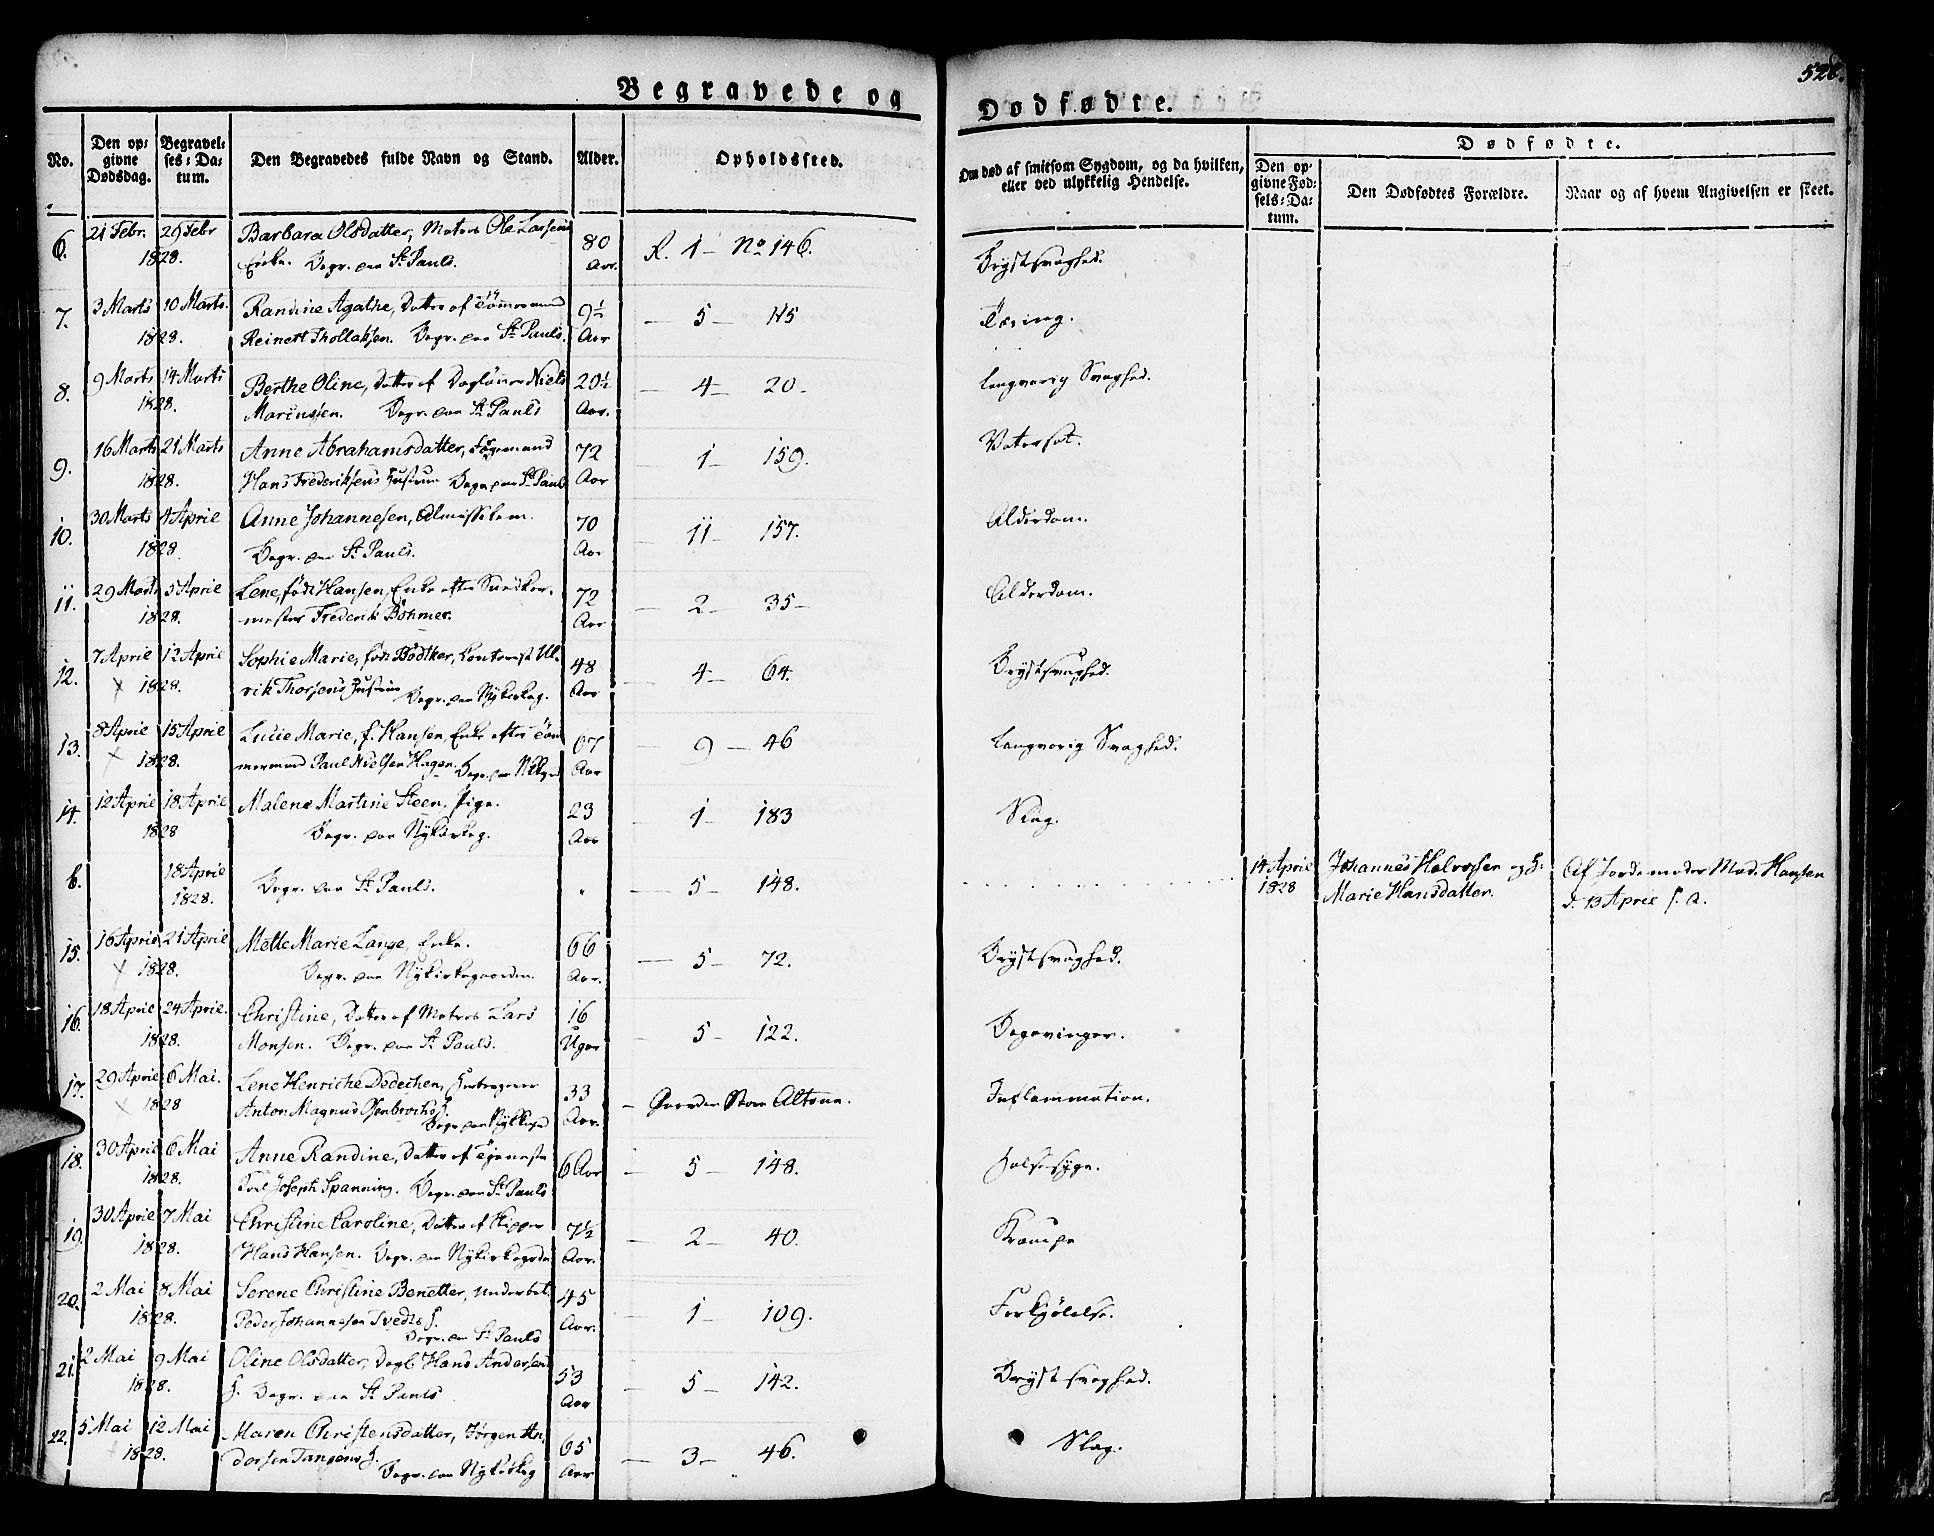 Begravede og
Dødfødte.
528.
No.
Den op-
givne
Dødsdag.
Begravel-
ses-Da-
tum.
Den Begravedes fulde Navn og Stand.
Alder.
Opholdssted.
Om død af smitsom Sygdom, og da hvilken,
eller ved ulykkelig Hendelse.
Dødfødte.
Den op-
givne Fød-
sels-Da-
tum.
Den Dødfødtes Forældre.
Naar og af hvem Angivelsen er skeet.
6. 21 Febr. 29 Febr Barbara Olsdatter, Matros Ole Larsens 80 R. 1 – No 146. Brystsvaghed.
1828. Enke. Begr. paa St. Pauls. Aar.
7. 3 Marts 10 Marts. Randine Agathe, Datter af Tømmermand 9½ – 5 – 115 Tæring.
1828. Reinert Thollaksen. Begr. paa St. Pauls. Aar
8. 9 Marts 14 Marts Berthe Oline, Datter af Daglønner Niels 20½ – 4 – 20 – Langvarig Svaghed.
1828. Marcussen. Begr. paa St. Pauls Aar.
9. 16 Marts 21 Marts Anne Abrahamsdatter, 72 – 1 – 159. Vatersot.
1828. Hans Frederiksens Hustrue Begr. paa St. Pauls Aar
10. 30 Marts 4 April Anne Johannesen, Almisselem. 70 – 11 – 157. Alderdom.
1828. Begr. paa St. Pauls. Aar
11. 29 Marts 5 April Lene, født Hansen, Enke efter Snedker- 72 – 2 – 35 – Alderdom.
1828. mester Frederik Böhmer. Aar
12. 7 April 12 April Sophie Marie, født Bødtker, Contorist Ul- 48 – 4 – 64. Brystsvaghed.
x 1828. rik Thorsens Hustrue Begr. paa Nykirkeg. Aar
13. 8 April 15 April Lucie Marie, f. Hansen, Enke efter Tøm- 67 – 9 – 46 Langvarig Svaghed.
x 1828. mermand Paul Nielsen Hagen. Begr. paa Nykkgd Aar
14. 12 April 18 April Malene Martine Steen, Pige. 23 – 1 – 183 Slag.
1828 Begr. paa Nykirkeg. Aar
6. 18 April Begr. paa St. Pauls. " – 5 – 148. 14 April Johannes Halvorsen og H: Af Jordemoder Mad. Hansen
1828. 1828 Marie Hansdatter. d. 13 April s. a.
15. 16 April 21 April Mette Marie Lange, Enke. 66 – 5 – 72. Brystsvaghed.
x 1828. Begr. paa Nykirkegaarden. Aar.
16. 18 April 24 April. Christine, Datter af Matros Lars 16 – 5 – 122. Begavinger.
1828. Monsen. Begr. paa St. Pauls. Uger
17. 29 April 6 Mai. Lene Henriche Dedechen, 33 – Gaarden Store Altona. Inflammation.
x 1828 Anton Magnus H. Begr. paa Nykkgd Aar.
18. 30 April 6 Mai Anne Randine, Datter af Tjeneste- 6 Aar – 5 – 148. Halssyge.
1828. Karl Joseph Spanning. Begr. paa St. Pauls
19. 30 April 7 Mai Christine Caroline, Datter af Skipper 7½ – 2 – 40. Krampe
1828. Hans Hansen. Begr. paa Nykirkegrdn Aar.
20. 2 Mai 8 Mai Serene Christine Benetter, Underbet. 45 – 1 – 109. Forkjølelse.
1828. Peder Johannesen Tvedtes H. Begr. paa St. Pauls Aar.
21. 2 Mai 9 Mai Oline Olsdatter, Dagl. Hans Andersens 53 – 5 – 142. Brystsvaghed.
1828. H. Begr. paa St. Pauls Aar
22. 5 Mai 12 Mai Maren Christensdatter, Jørgen An- 65 – 3 – 46. Slag.
x 1828. dersen Tangens H. Begr. paa Nykirkeg Aar